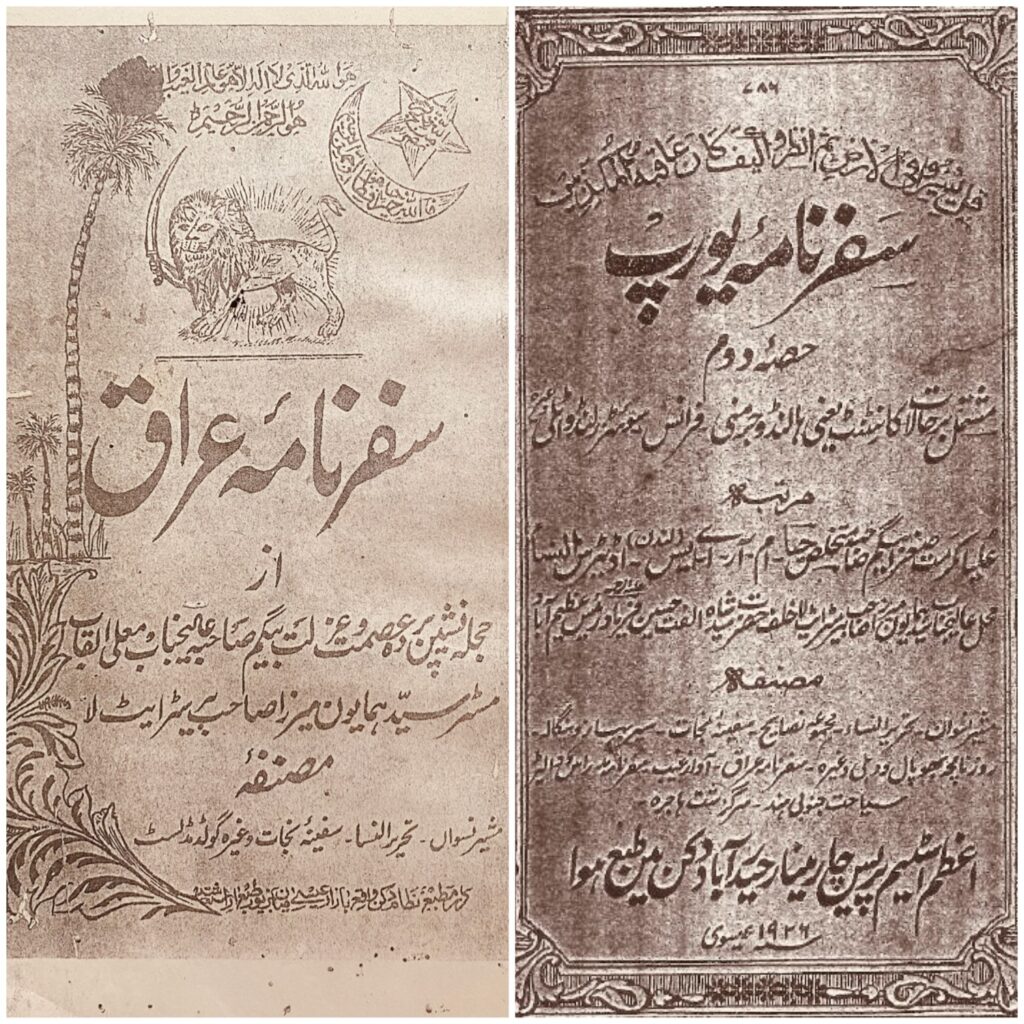 هو الله الذی لا اله الا هو عالم الغیب
هو الرحمن الرحیم
سفر نامۂ عراق
از
حجلہ نشین پردہ عصمت و عزلت بیگم صاحبہ عالیجناب معلی القاب
مسٹر سیّد ہمایون میرزا صاحب بیرسٹر ایٹ لا
مصنفۂ
مشیر نسواں - تحریر النسا - سفینۂ نجات وغیرہ گولڈ مڈلسٹ
در مطبع نظام دکن واقع بازار
۷۸۶
قل سیروا فی الارض ثم انظروا کیف کان عاقبة المکذبین
سفر نامۂ یورپ
حصۂ دوم
مشتمل بر حالات کانٹننٹ یعنی ہالنڈ و جرمنی فرانس سوئٹزرلنڈ و اٹلی
مرتبہ
علیا صغرا بیگم صاحبہ متخلص حیا - ام - آر - اے - ایس (لندن) - اڈیٹرس النسا
محل عالیجناب سید ہمایون میرزا صاحب بیرسٹر ایٹ لا خلف حضرت سید شاہ الفت حسین فریاد رئیس عظیم آباد
مصنفہ
مشیر نسوان - تحریر النسا - مجموعہ نصایح - سفینہ نجات - سیر بہار و بنگالہ -
روزنامچہ بھوپال و دہلی وغیرہ - سفر نامہ عراق - آواز غیب - سفر نامہ
سیاحت جنوبی ہند - سرگزشت ہاجرہ -
اعظم اسٹیم پریس چار مینار حیدرآباد دکن مین طبع ہوا
سنہ ۱۹۲۶ عیسوی